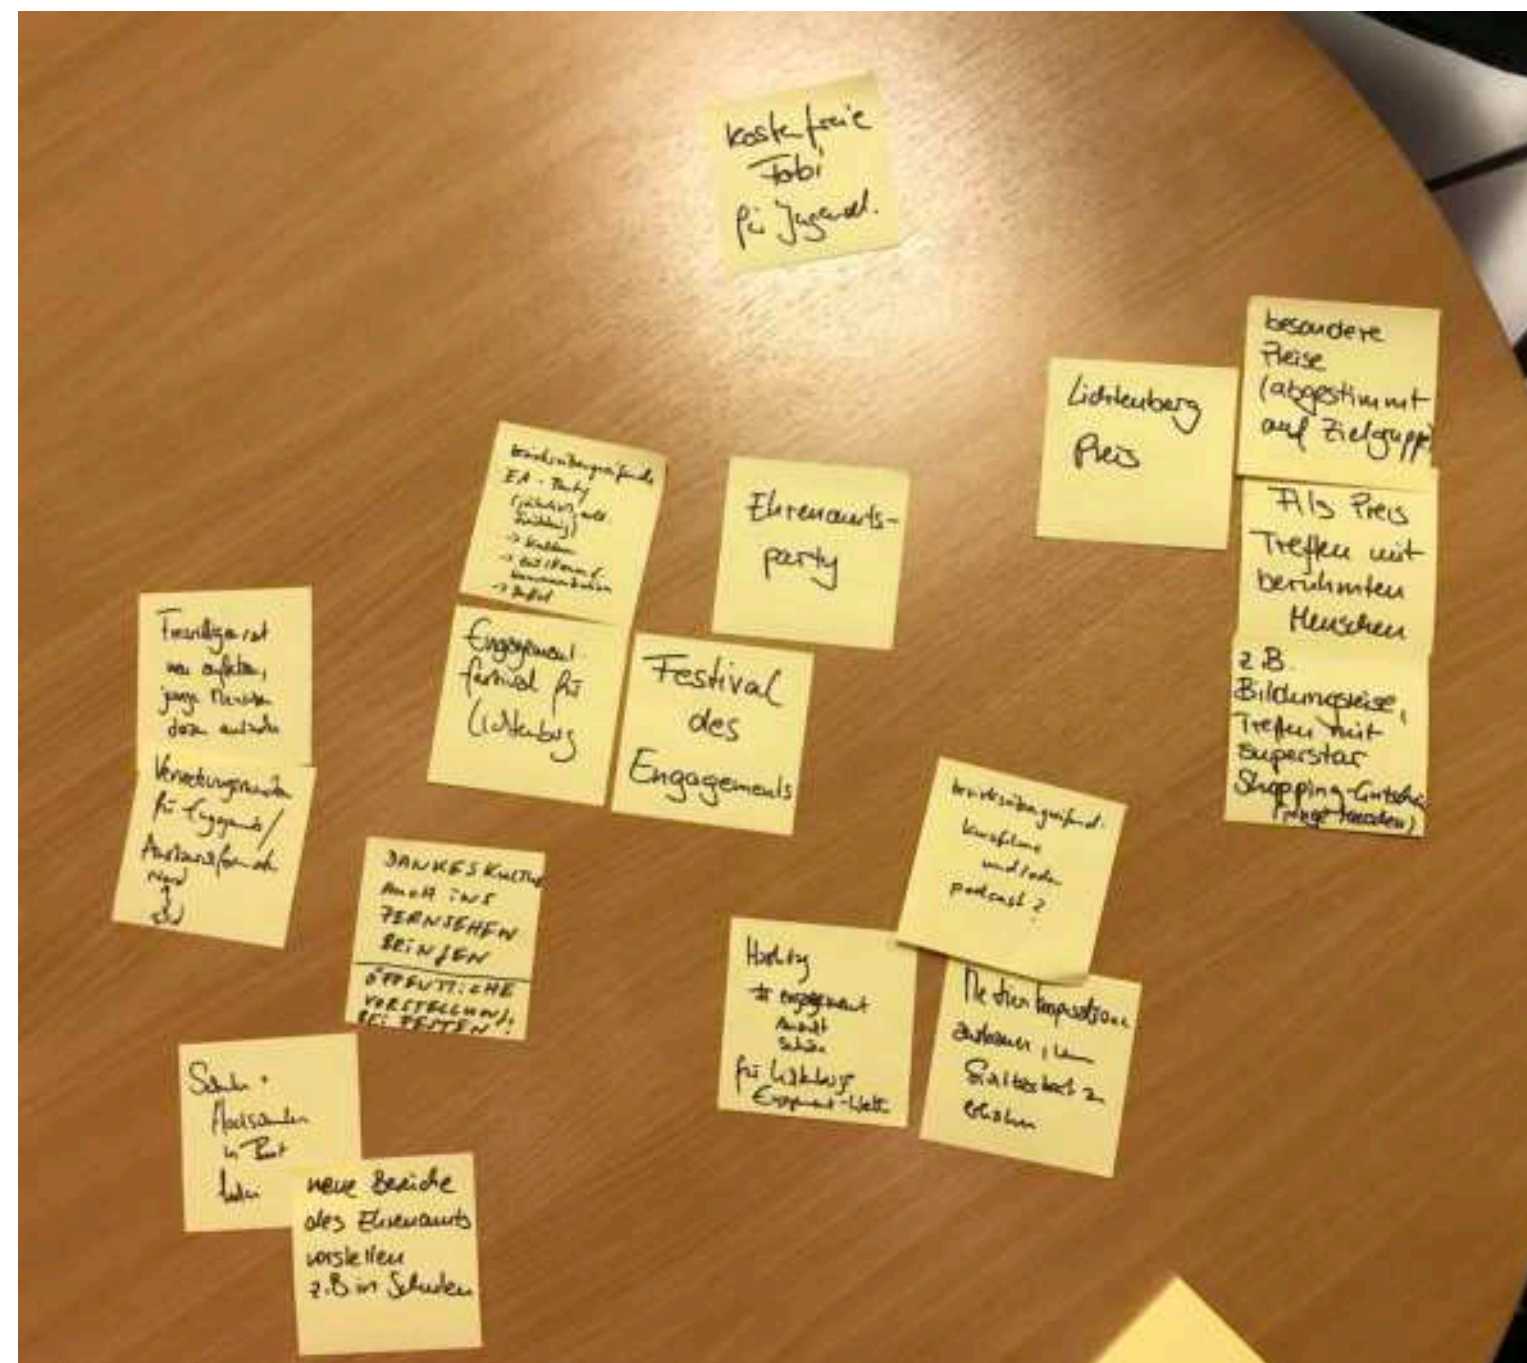 kostenfreie
Fobi
für Jugendl.
besondere
Preise
(abgestimmt
auf Zielgruppe
Lichtenberg
Preis
Als Preis
Treffen mit
berühmten
Menschen
z.B.
Bildungsreise,
Treffen mit
Superstar
Shopping-Gutschein
bezirksübergreifende
EA-Party
Ehrenamts-
party
Engagement
festival für
Lichtenberg
Festival
des
Engagements
Freiwilligenrat
neu aufsetzen,
junge Menschen
dazu
für Engagierte/
Nord
Süd
DANKESKULTUR
AUCH INS
FERNSEHEN
BRINGEN
ÖFFENTLICHE
VORSTELLUNG
BEI FESTEN!
bezirksübergreifend.
Kurzfilme
und/oder
podcast?
Hashtag
# engagement
für Lichtenberg
Medienkooperationen
ausbauen, um
Sichtbarkeit zu
erhöhen
Schulen +
Hochschulen
in Boot
holen
neue Bereiche
des Ehrenamts
vorstellen
z.B in Schulen